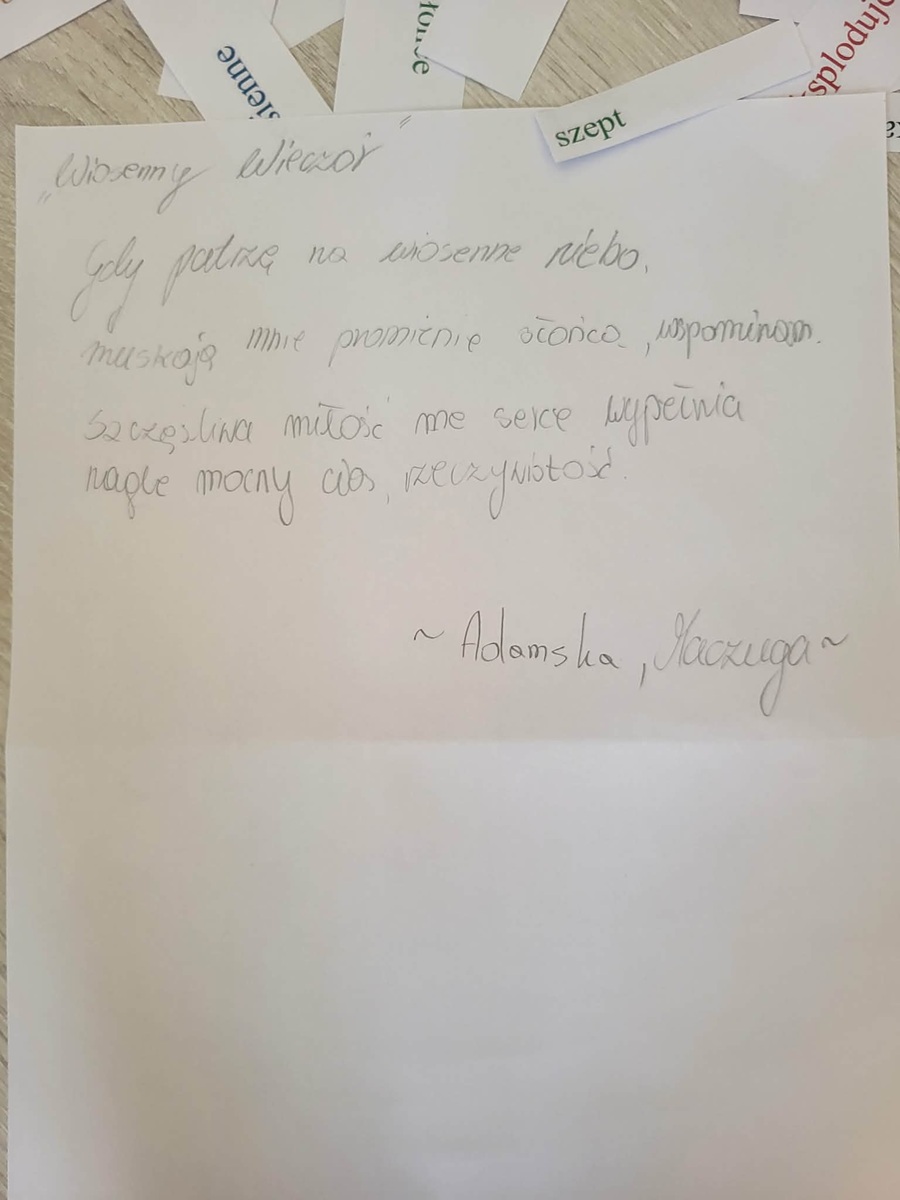 szept
„Wiosenny Wieczór"
Gdy patrzę na wiosenne niebo,
muskają mnie promienie słońca, wspominam.
Szczęśliwa miłość me serce wypełnia
nagle mocny cios, rzeczywistość.
~ Adamska, Maczuga ~